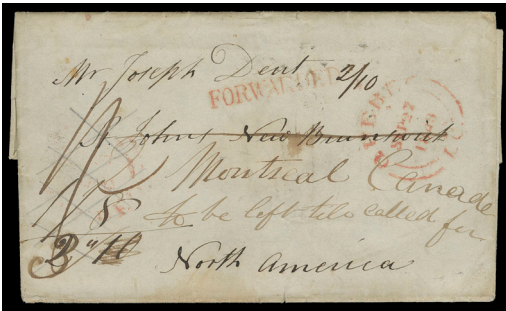 Mr Joseph Dent 2/10
FORWARDED
St. Johns New Brunswick
Montreal Canada
to be left till called for
North America